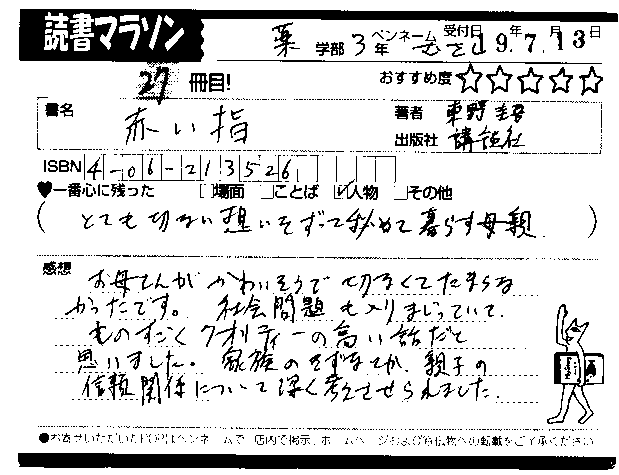 読書マラソン
薬 学部 3年 ペンネーム 受付日 19年7月13日
27冊目! おすすめ度 ☆☆☆☆☆
書名 赤い指 著者 東野圭吾
出版社 講談社
ISBN 4-06-213526
♥一番心に残った □場面 □ことば ☑人物 □その他
(とても切ない想いをずっと秘めて暮らす母親)
感想 お母さんがかわいそうで切なくてたまらな
かったです。社会問題も入りまじっていて、
ものすごくクオリティーの高い話だと
思いました。家族のきずなとか、親子の
信頼関係について深く考えさせられました。
●お寄せいただいたPOPはペンネームで、店内で掲示、ホームページおよび宣伝物への転載をご了承ください